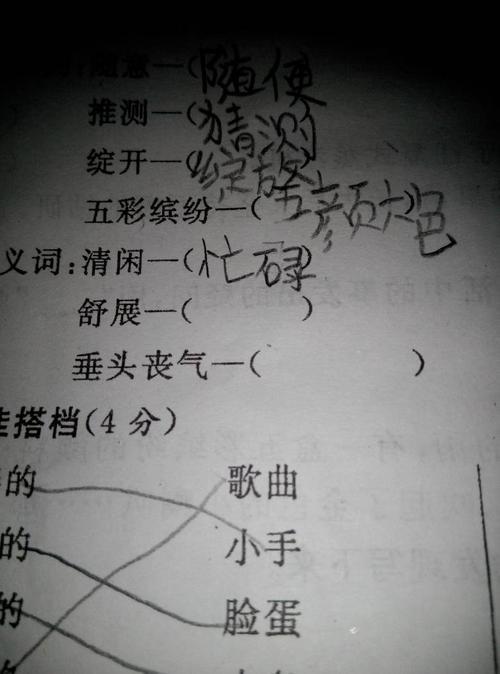 随意—(随便
推测—(猜测)
绽开—(绽放)
五彩缤纷—(五颜六色)
义词:清闲—(忙碌)
舒展—( )
垂头丧气—( )
搭档(4分)
的 歌曲
的 小手
的 脸蛋